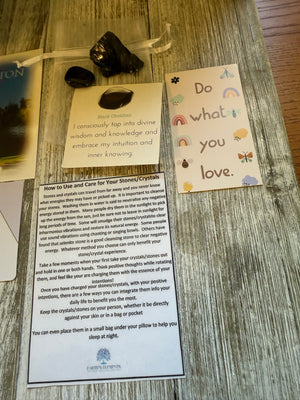 TON
Black Obsidian
I consciously tap into divine
wisdom and knowledge and
embrace my intuition and
inner knowing.
Do
what
you
love.
How to Use and Care for Your Stones/Crystals
Stones and crystals can travel from far away and you never know
what energies they may have or picked up. It is important to cleanse
your stones. Washing them in water is said to neutralize any negative
energy stored in them. Many people dry them in the sunlight to pick
up the energy from the sun, just be sure not to leave in sunlight for
long periods of time. Some will smudge their stones/crystals to clear
harmonious vibrations and restore its natural energy. Some people
use sound vibrations using chanting or singing bowls. Others have
found that selenite stone is a good cleansing stone to clear negative
energy. Whatever method you choose can only benefit your
stone/crystal experience.
Take a few moments when your first take your crystals/stones out
and hold in one or both hands. Think positive thoughts while rotating
them, and feel like your are charging them with the essence of your
intentions!
Once you have charged your stones/crystals, with your positive
intentions, there are a few ways you can integrate them into your
daily life to benefit you the most.
Keep the crystals/stones on your person, whether it be directly
against your skin or in a bag or pocket
You can even place them in a small bag under your pillow to help you
sleep at night.
EARTH'S ELEMENTS